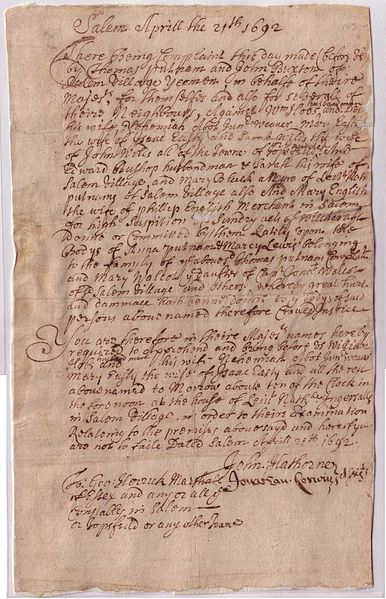 Salem Aprill the 21th 1692
There Being Complaint this day made (before us)
by Thomas putnam and John Buxton of
Salem Village Yeomen in behalfe of theire
Majests, for themselves and also for severall of
theire Neighbours, Against Wm Hobs husbandman and
his wife, Nehemiah Abot Junr weaver Mary Easty
the wife of Isaac Easty and Sarah Wilds the wife
of John Wilds all of the Towne of Topsfield. And
Edward Bushop husbandman & Sarah his wife of
Salem Village, and Mary Black a Negro of Leut Nath
putnams of Salem Village also And Mary English
the wife of Phillip English Merchant in Salem
for high Suspition of Sundry acts of Witchcraft
donne or Committed by them Lately upon the
Bodys of Anna putnam & Marcy Lewis belonging
to the family of ye abovesd Thomas putnam complaint
and Mary Walcot ye Daughter of Capt Jonat Walcot
of sd Salem Village and others, whereby great hurt
and dammage hath benne donne to ye bodys of said
persons above named therefore Craved Justice
You are therefore in theire Majests names hereby
required to apprehend and bring before us William
Hobs husbandman and his wife Nehemiah Abot Junr weaver
Mary Easty the wife of Isaac Easty and all the rest
abovenamed to Morrow aboute ten of the Clock in
the forenoon at the house of Leut Nathll Ingersalls
in Salem Village. in order to theire Examination
Relating to the premises abovesayd and hereof you
are not to faile Dated Salem Aprill 21th 1692.
John Hathorne
Jonathan. Corwin
To: Geo: Herrick Marshal
of Essex and any or all ye
Constables in Salem
or Topsfeild or any other Towne